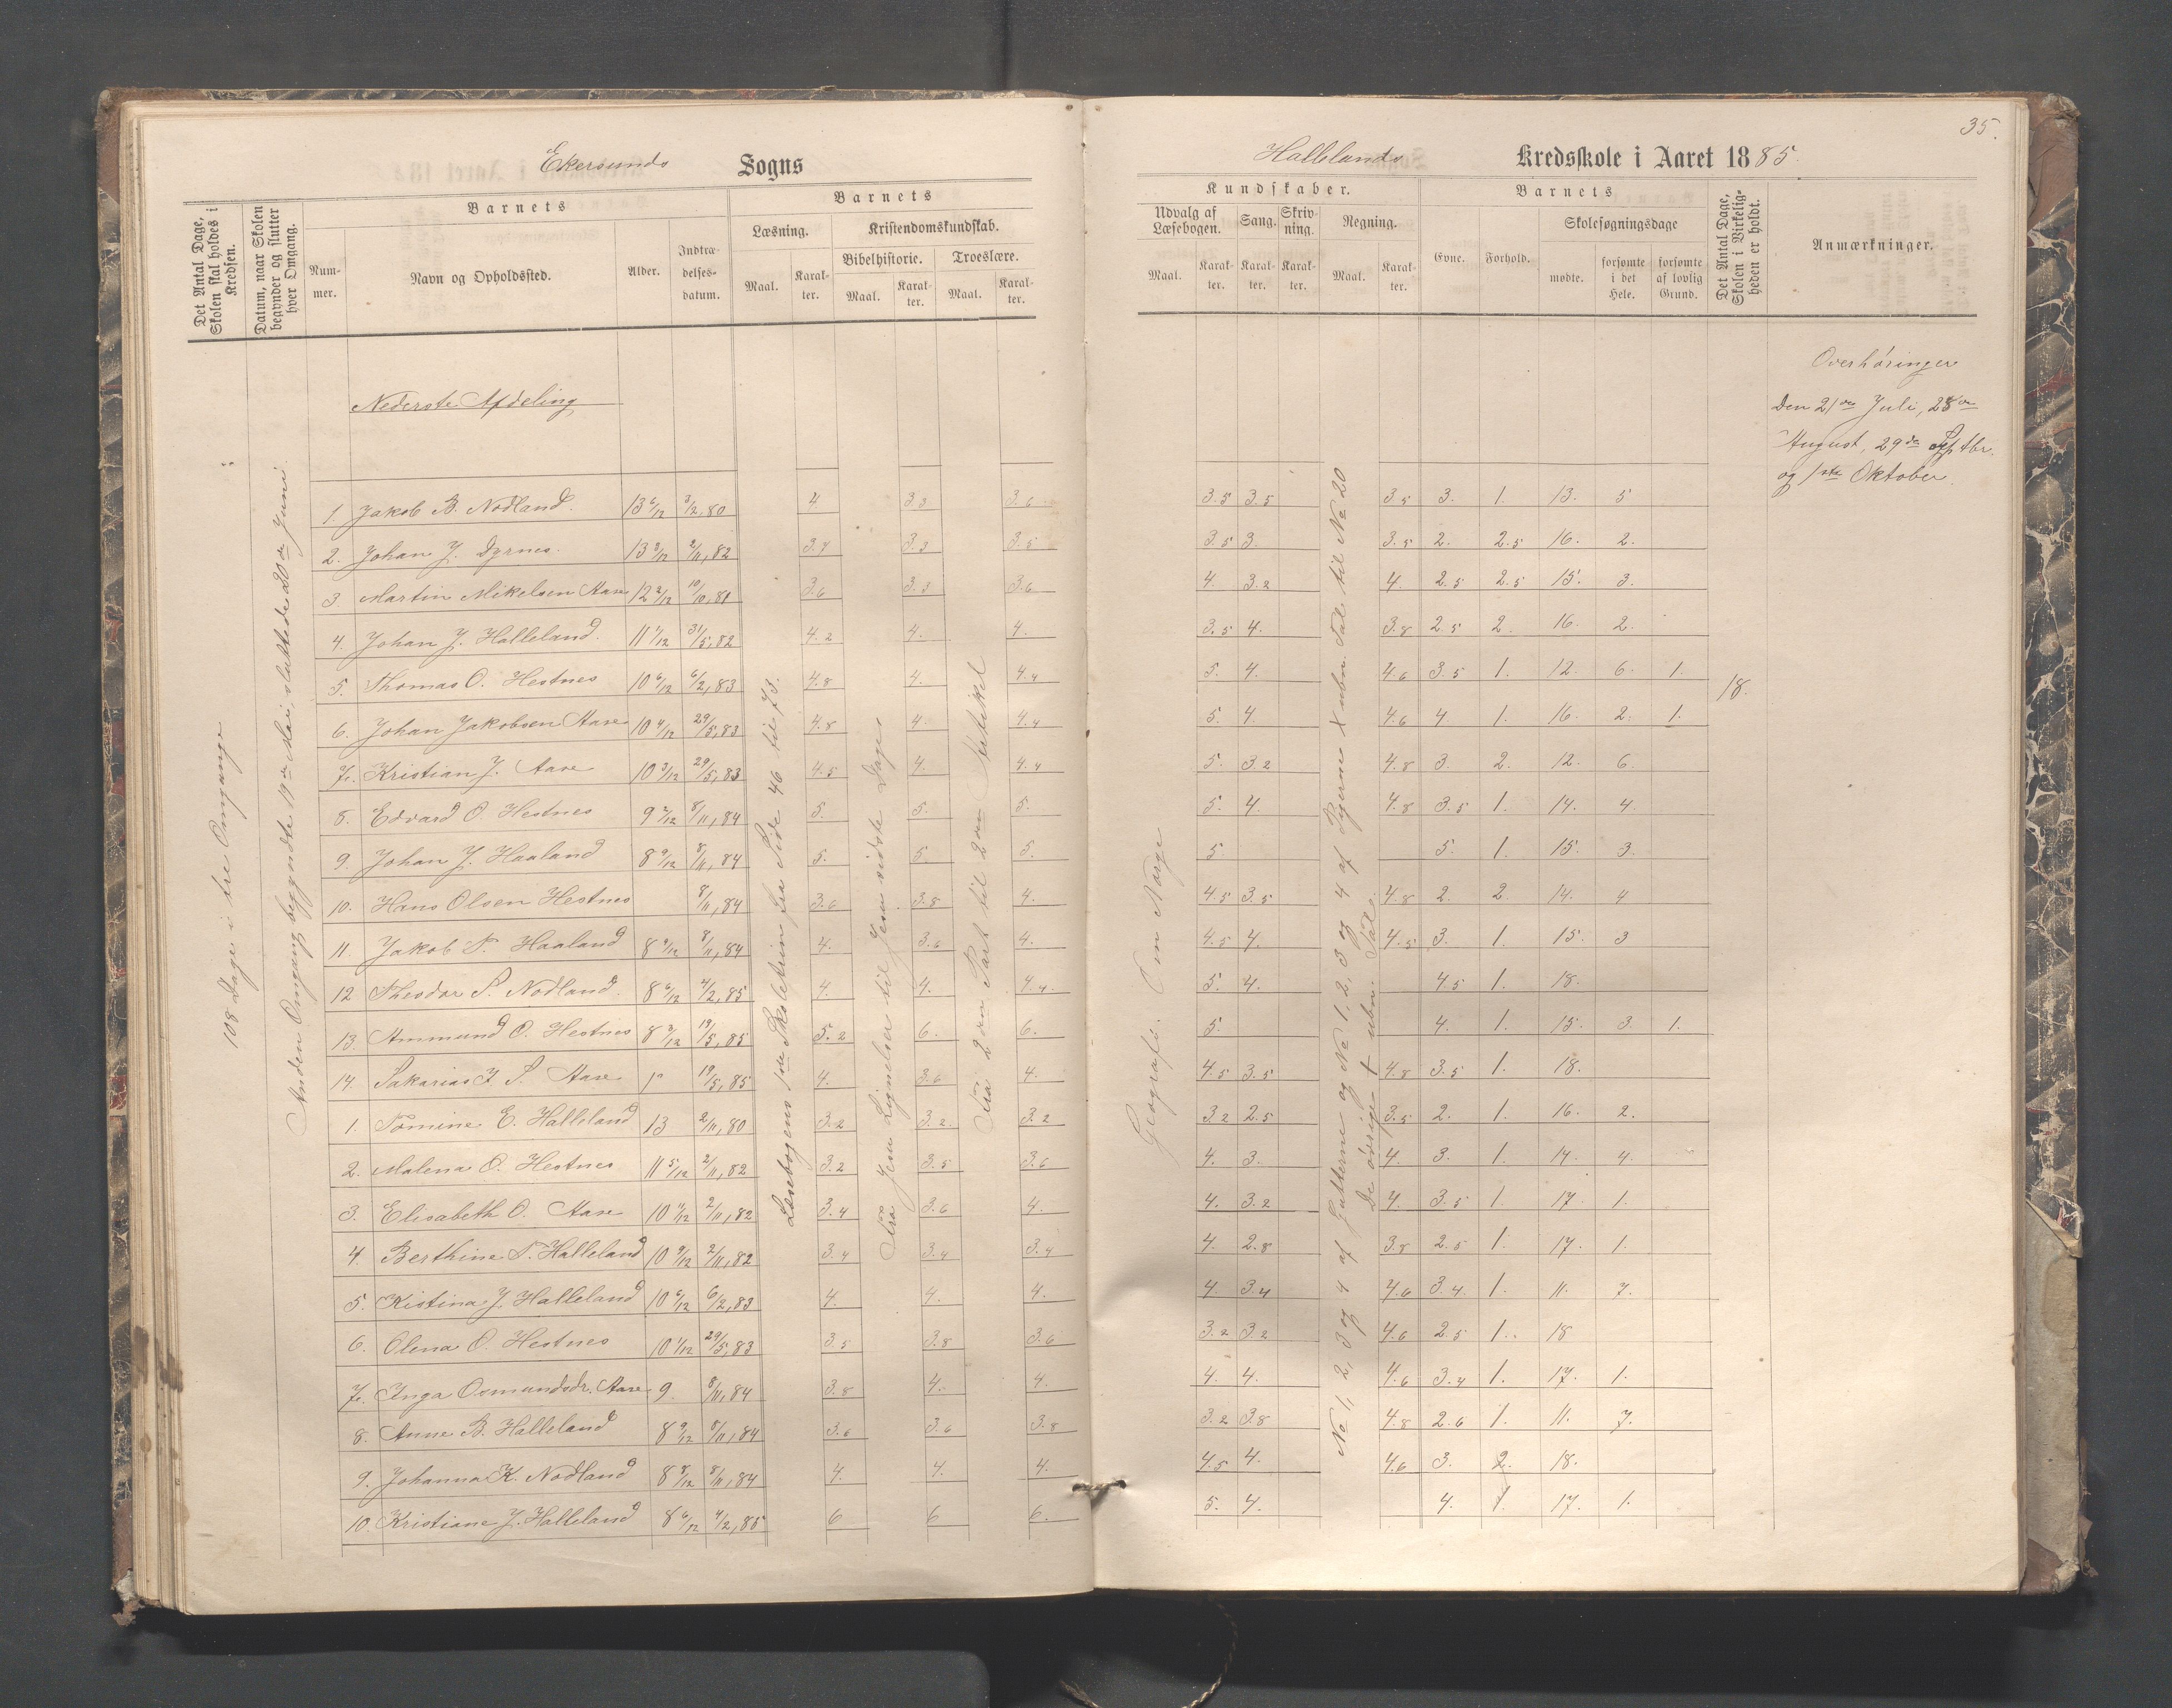 35.
Ekersunds Sogns
Hallelands Kredsskole i Aaret 1885.
Det Antal Dage, Skolen skal holdes i Kredsen.
Datum, naar Skolen begynder og slutter hver Omgang.
Barnets
Num-
mer.
Navn og Opholdssted.
Alder.
Indtræ-
delses-
datum.
Barnets
Læsning.
Maal.
Karak-
ter.
Kristendomskundskab.
Bibelhistorie.
Maal.
Karak-
ter.
Troeslære.
Maal.
Karak-
ter.
Kundskaber.
Udvalg af
Læsebogen.
Maal.
Karak-
ter.
Sang.
Karak-
ter.
Skriv-
ning.
Karak-
ter.
Regning.
Maal.
Karak-
ter.
Barnets
Evne.
Forhold.
Skolesøgningsdage
mødte.
forsømte
i det
Hele.
forsømte
af lovlig
Grund.
Det Antal Dage, Skolen i Virkelig-
heden er holdt.
Anmærkninger.
Nederste Afdeling
Overhøringer
Den 21de Juli, 28de
August, 29de Septbr.
og 1ste Oktober.
108 Dage i tre Omgange
Anden Omgang begyndte 19de Mai, sluttede 20de Juni
Læsebogens 1ste Skoletrin fra Side 46 til 73.
Fra Jesu Lignelser til Jesu sidste Dage
Fra 2den Part til 2den Artikel
Geografi: Om Norge
No 1, 2, 3 og 4 af Gutterne og No 1, 2, 3 og 4 af Pigerne X ubn. Tal til No 20
De øvrige + ubn. Tal.
18.
1. Jakob B. Nodland. 13 6/12 3/2, 80 4 3.3 3.6 3.5 3.5 3.5 3. 1. 13. 5
2. Johan J. Dyrnes. 13 3/12 2/11, 82 3.8 3.3 3.5 3.5 3. 3.5 2. 2.5 16. 2.
3. Martin Mikelsen Aase 12 2/12 10/10, 81 3.6 3.3 3.6 4. 3.2 4. 2.5 2.5 15. 3.
4. Johan J. Halleland. 11 4/12 31/5, 82 4.2 4. 4. 3.5 4. 3.8 2.5 2. 16. 2.
5. Thomas O. Hestnes 10 6/12 6/2, 83 4.8 4. 4.4 5. 4. 4.6 3.5 1. 12. 6. 1.
6. Johan Jakobsen Aase 10 4/12 29/5, 83 4.8 4. 4.4 5. 4. 4.6 4. 1. 16. 2. 1.
7. Kristian J. Aase 10 3/12 29/5, 83 4.5 4. 4.4 5. 3.2 4.8 3. 2. 12. 6.
8. Edvard O. Hestnes 9 2/12 8/11, 84 5. 5. 5. 5. 4. 4.8 3.5 1. 14. 4.
9. Johan J. Haaland 8 9/12 8/11, 84 5. 5. 5. 5. 5. 1. 15. 3.
10. Hans Olsen Hestnes 8/11, 84 3.6 3.8 4. 4.5 3.5 4.8 2. 2. 14. 4
11. Jakob N. Haaland 8 9/12 8/11, 84 4. 3.6 4. 4.5 4. 4.5 3. 1. 15. 3
12 Theodor S. Nodland. 8 6/12 4/2, 85 4. 4. 4.4. 5. 4. 4.5 1. 18.
13. Ammund O. Hestnes 8 3/12 19/5, 85 5.2 6. 6. 5. 4. 1. 15. 3. 1.
14. Sakarias J. S. Aase 19/5, 85 4. 3.6 4. 4.5 3.5 4.8 3.5 1. 18.
1. Tomine E. Halleland 13 2/11, 80 3.2 3.2. 3.2 3.2 2.5 3.5 2. 1. 16. 2.
2. Malena O. Hestnes 11 5/12 2/11, 82 3.2 3.5 3.6 4. 3. 4. 3. 1. 14. 4.
3. Elisabeth O. Aase 10 11/12 2/11, 82 3.4 3.6 4. 4. 3.2 4. 3.5 1. 17. 1.
4. Berthine T. Halleland 10 9/12 2/11, 82 3.4 3.4 3.4 4. 2.8 3.8 2.5 1. 17. 1.
5. Kistina J. Halleland 10 6/12 6/2, 83 4. 4. 4. 4. 3.4 4.6 3.4. 1. 11. 7.
6. Olena O. Hestnes 10 1/12 29/5, 83 3.5 3.8 3.6 3.2 3.2 4.6 2.5 1. 18
7. Inga Osmundsdr. Aase 9. 8/11, 84 3.8 4. 4. 4. 4. 4.6 3.4 1. 17. 1.
8. Anne B. Halleland 8 9/12 8/11, 84 3.6 3.6 3.8 3.2 3.8 4.8 2.6 1. 11. 7.
9. Johanna K. Nodland 8 8/12 8/11, 84 4. 4. 4. 4.5 4. 4.6 3. 2. 18.
10. Kristiane J. Halleland 8 6/12 4/2, 85 6 6 6. 5. 4. 4. 1. 17. 1.